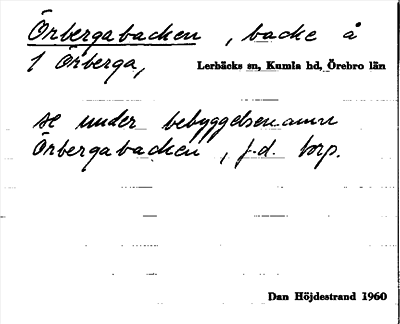 Örbergabacken, backe å
1 Örberga, Lerbäcks sn, Kumla hd, Örebro län
se under bebyggelsenamn
Örbergabacken, f.d. torp.
Dan Höjdestrand 1960